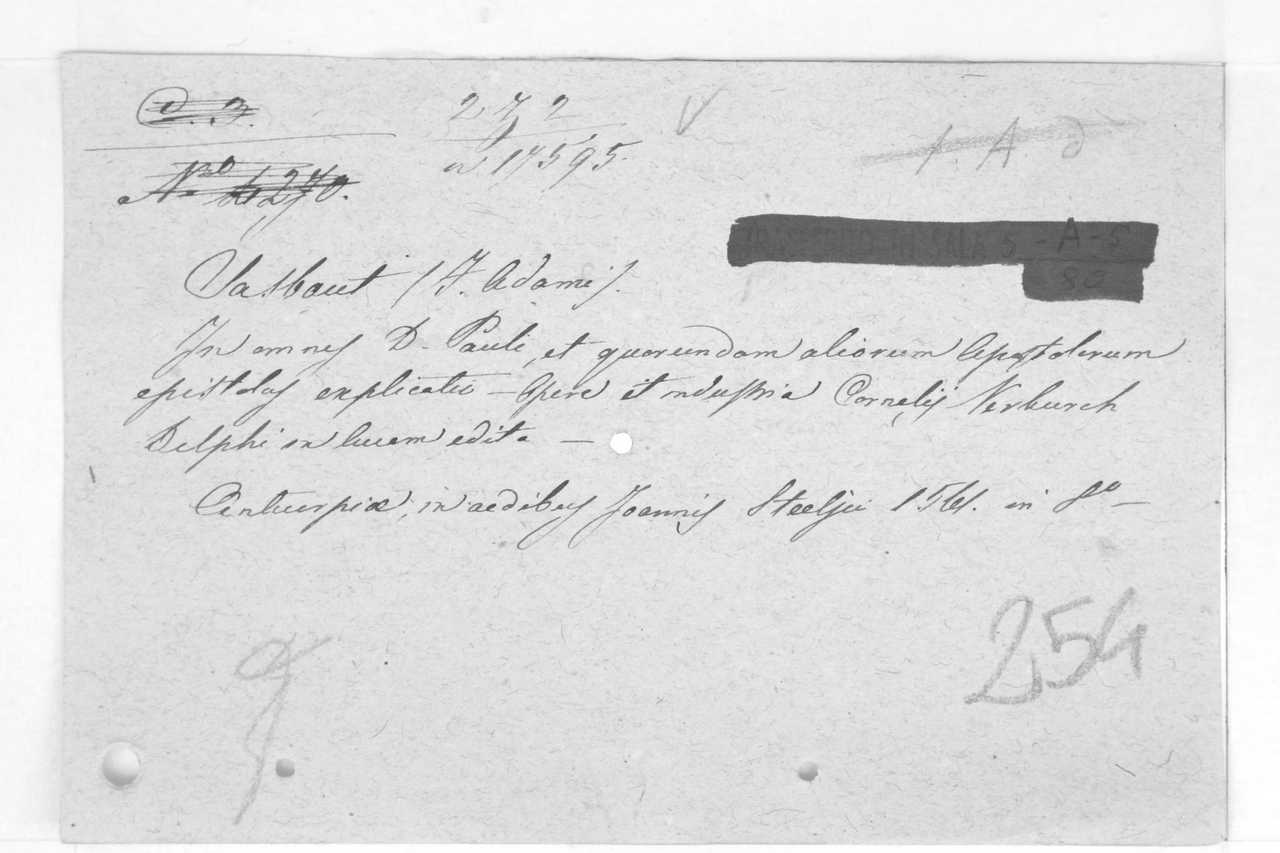 d. 3.
272
in 17595.
V
1. A d
Nro 4270.
TRASFERITO IN SALA 5 - A - 5
80
Sasbout (F. Adami).
In omnes D. Pauli, et quorundam aliorum Apostolorum
epistolas explicatio — Opere et industria Cornelij Verburch
Delphi in lucem edita —
Antuerpiæ, in aedibus Joannis Steelsii 1561. in 8o —
254